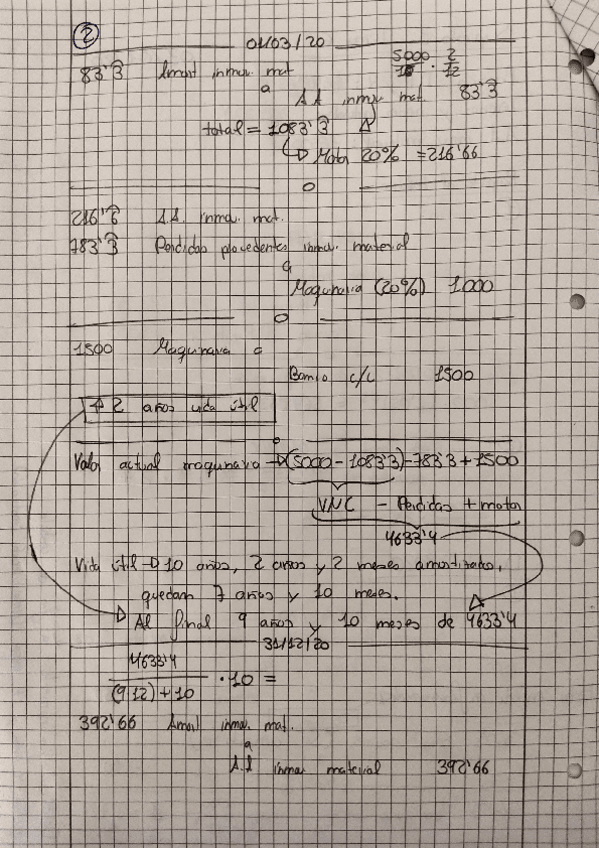 2
01/03/20
83'3̂ Amort inmov. mat 5000/10 · 2/12
a
A A inmov. mat. 83'3̂
total = 1083'3̂
↳ Motor 20% = 216'66
216'6̂ A.A. inmov. mat.
783'3̂ Perdidas procedentes inmov. material
a
Maquinaria (20%) 1.000
1500 Maquinaria a
Banco c/c 1500
↑ 2 años vida útil
Valor actual maquinaria → (5000 - 1083'3) - 783'3 + 1500
VNC - Perdidas + motor
4633'4
Vida útil → 10 años, 2 años y 2 meses amortizados,
quedan 7 años y 10 meses.
Al final 9 años y 10 meses de 4633'4
31/12/20
4633'4 / (9·12) + 10 · 10 =
392'66 Amort inmov. mat.
a
A.A inmov material 392'66